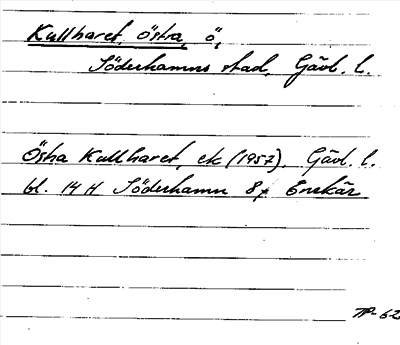 Kullharet, Östra, ö,
Söderhamns stad, Gävl. l.
Östra Kullharet, ek (1957), Gävl. l.
bl. 14 H Söderhamn 8f Enskär
TP-62